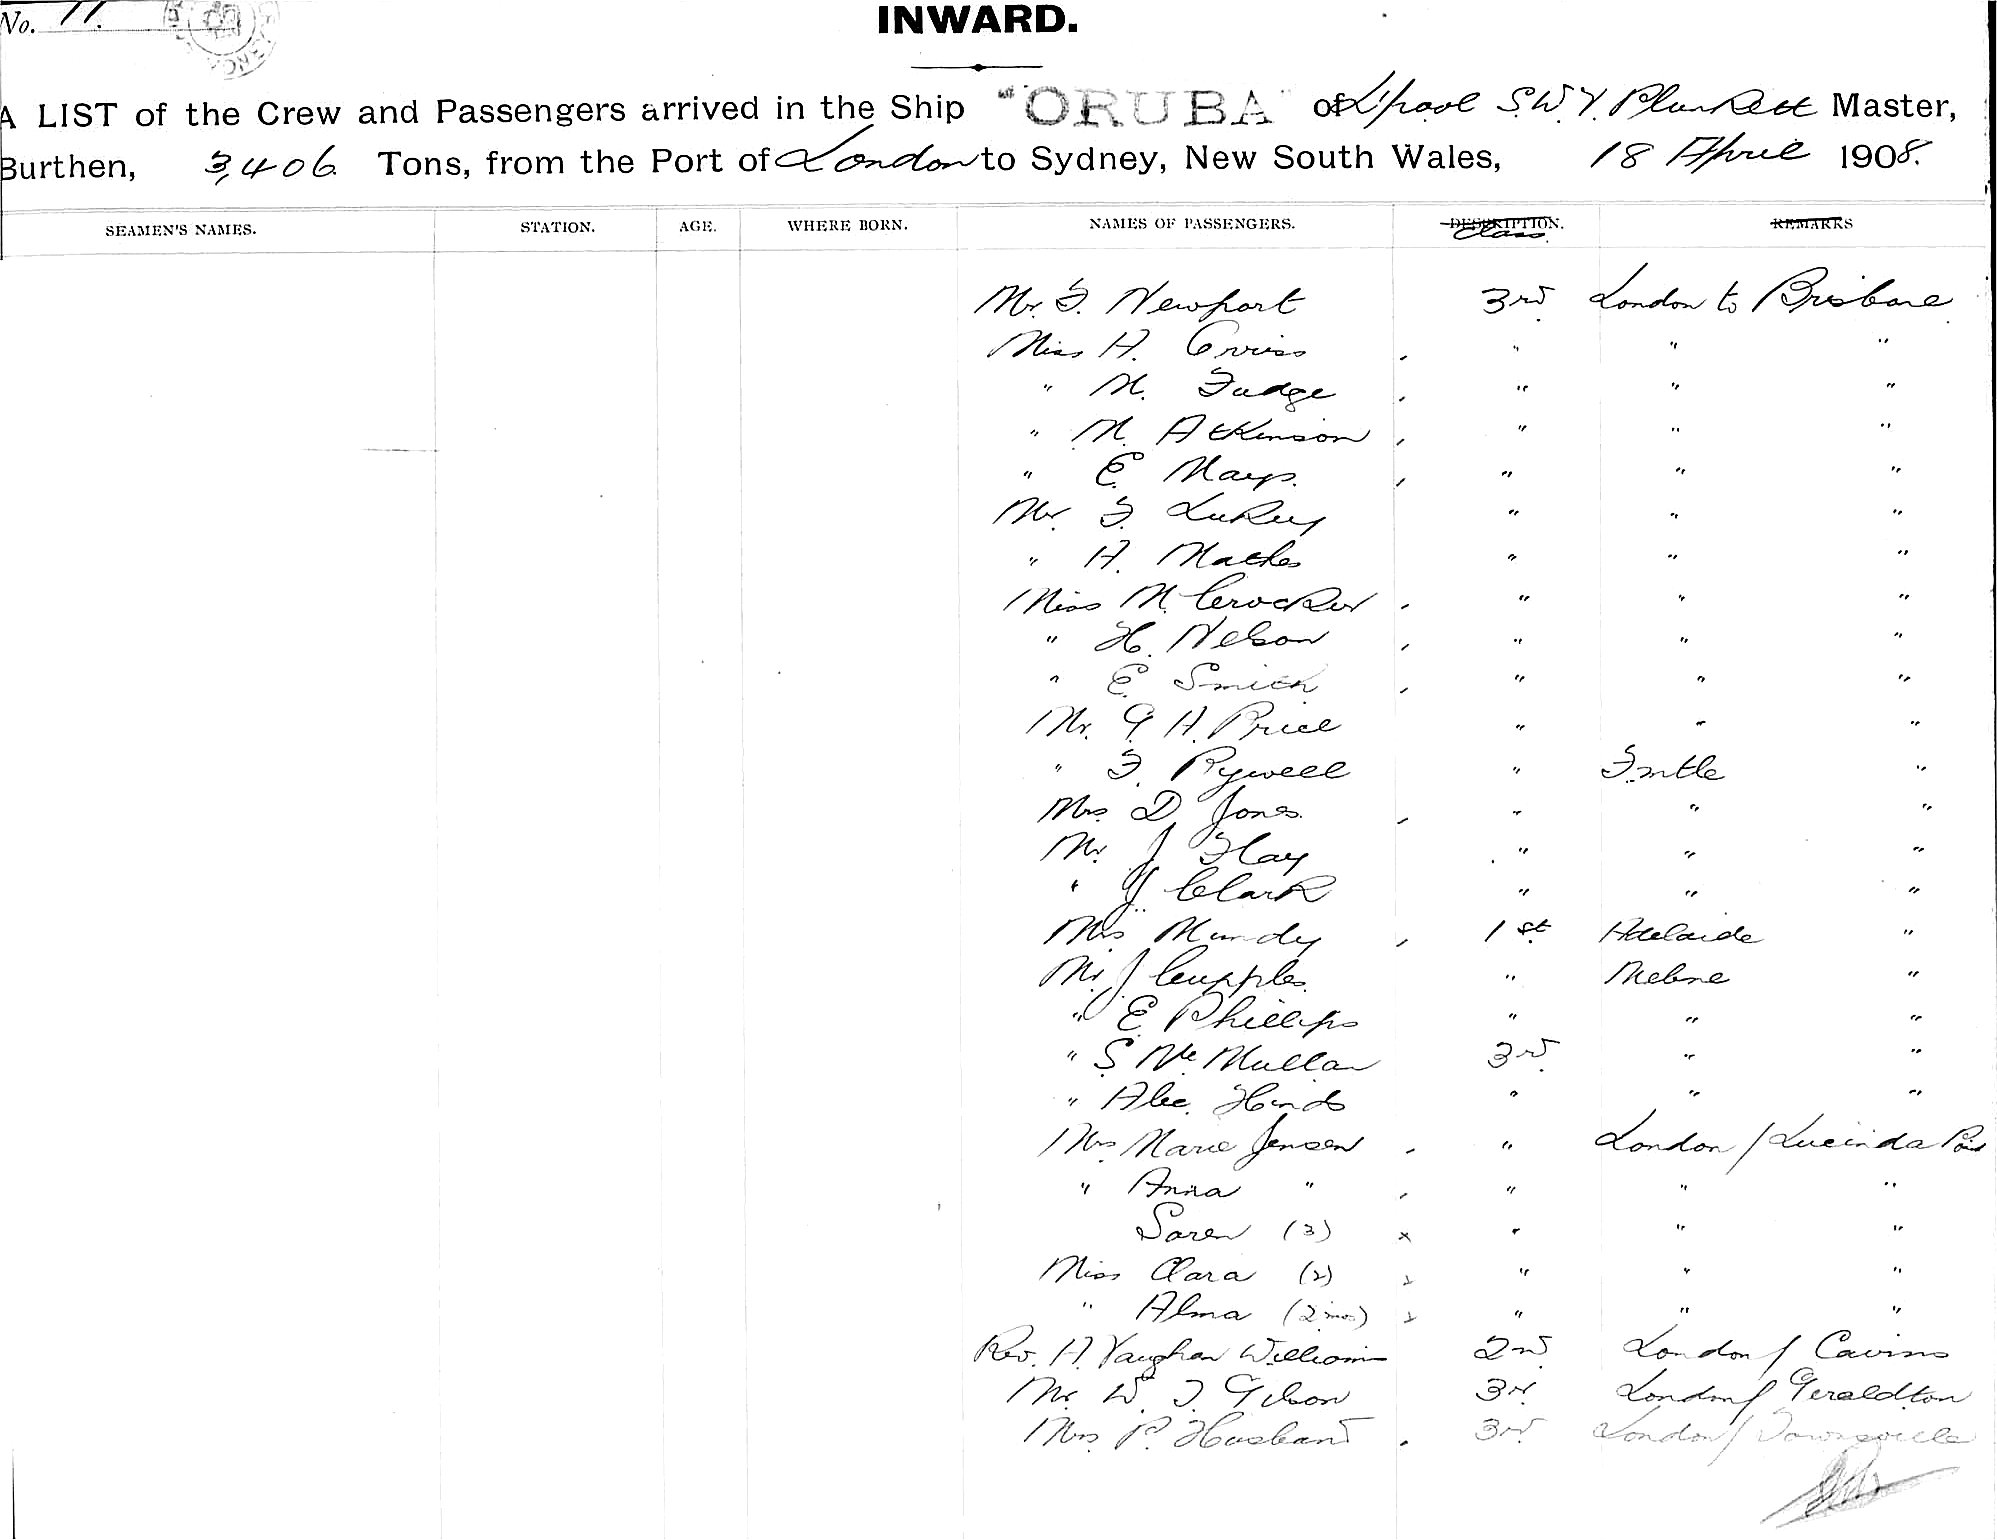 No. 11.
INWARD.
A LIST of the Crew and Passengers arrived in the Ship "ORUBA" of L'pool S.W.Y. Plunkett Master,
Burthen, 3,406 Tons, from the Port of London to Sydney, New South Wales, 18 April 1908.
SEAMEN'S NAMES. STATION. AGE. WHERE BORN. NAMES OF PASSENGERS. DESCRIPTION. Class. REMARKS
Mr. F. Newport 3rd London to Brisbane
Miss H. , " " "
" M. Fudge , " " "
" M. Atkinson , " " "
" E. Mays. , " " "
Mr. F. LuKey " " "
" H. Mathes " " "
Miss M. Crocker , " " "
" H. Nelson , " " "
" E. Smith , " " "
Mr. G. H. Price " " "
" F. Rywell " Fmtle "
Mrs. D. Jones. , " " "
Mr. J. Hay " " "
" J. Clark " " "
Mrs Mundy , 1st Adelaide "
Mr. J. Cupples. " Melbne "
" E. Phillips " " "
" S. McMullan 3rd " "
" Alec. Hinds " " "
Mrs Marie Jensen , " London / Lucinda Poi
" Anna " , " " "
Soren (3) x " " "
Miss Clara (2) x " " "
" Alma (2 mos) x " " "
Rev. H. Vaughan Williams 2nd London / Cairns
Mr. W. J. Gibson 3rd London / Geraldton
Mrs. P. Husband , 3rd London / Townsville